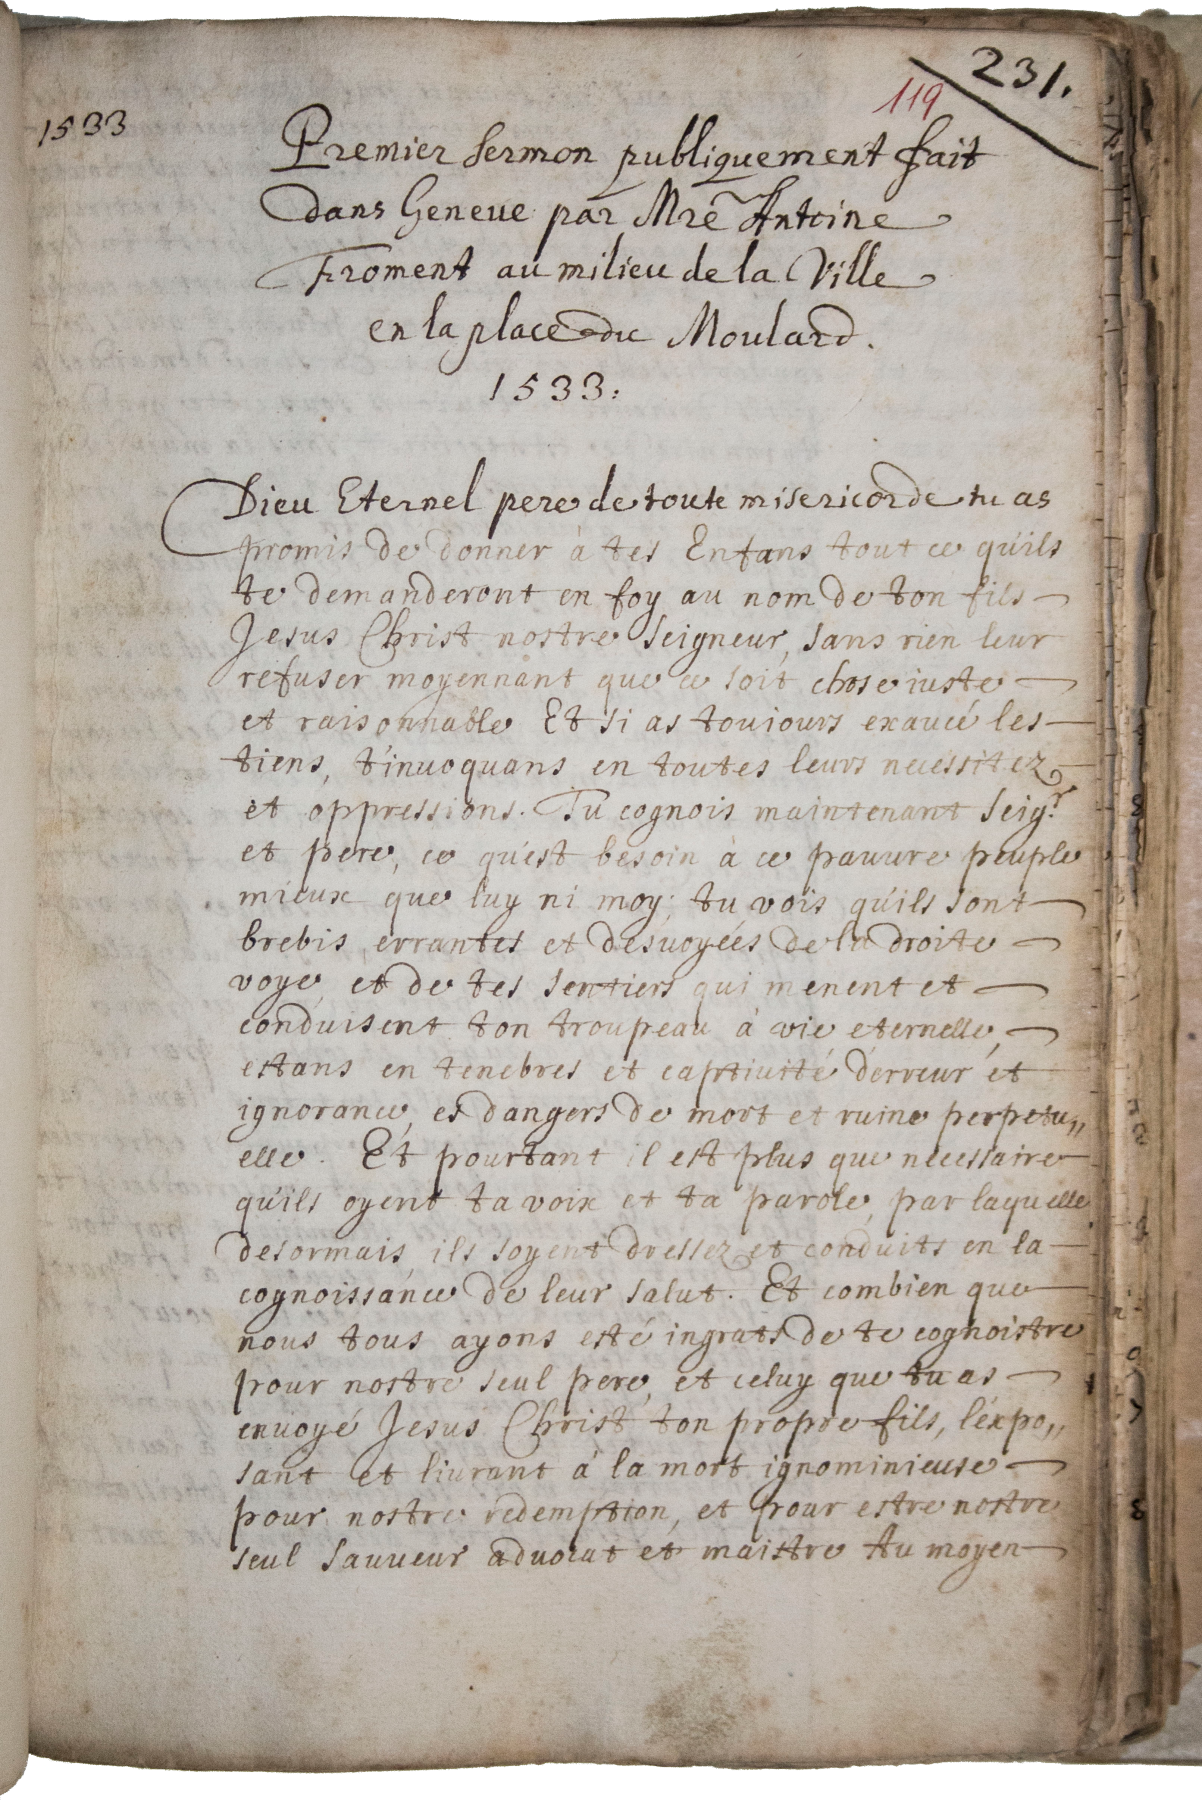 231.
119
1533
Premier sermon publiquement fait
dans Geneue par Mre Antoine
Froment au milieu de la Ville
en la place du Moulard.
1533:
Dieu Eternel pere de toute misericorde tu as
promis de donner à tes Enfans tout ce qu'ils
te demanderont en foy au nom de ton fils
Jesus Christ nostre seigneur, sans rien leur
refuser moyennant que ce soit chose iuste
et raisonnable Et si as toujours exaucé les
tiens, t'inuoquans en toutes leurs necessitez
et oppressions. Tu cognois maintenant seigr.
et pere, ce qu'est besoin à ce pauure peuple
mieux que luy ni moy; tu vois qu'ils sont
brebis errantes et desuoyées de la droite
voye, et de tes sentiers qui menent et
conduisent ton troupeau à vie eternelle,
estans en tenebres et captiuité d'erreur et
ignorance, es dangers de mort et ruine perpetu„
elle. Et pourtant il est plus que necessaire
qu'ils oyent ta voix et ta parole, par laquelle
desormais ils soyent dressez et conduits en la
cognoissance de leur salut. Et combien que
nous tous ayons esté ingrats de te cognoistre
pour nostre seul pere, et celuy que tu as
enuoyé Jesus Christ ton propre fils, l'expo„
sant et liurant à la mort ignominieuse
pour nostre redemption, et pour estre nostre
seul sauueur aduocat et maistre Au moyen